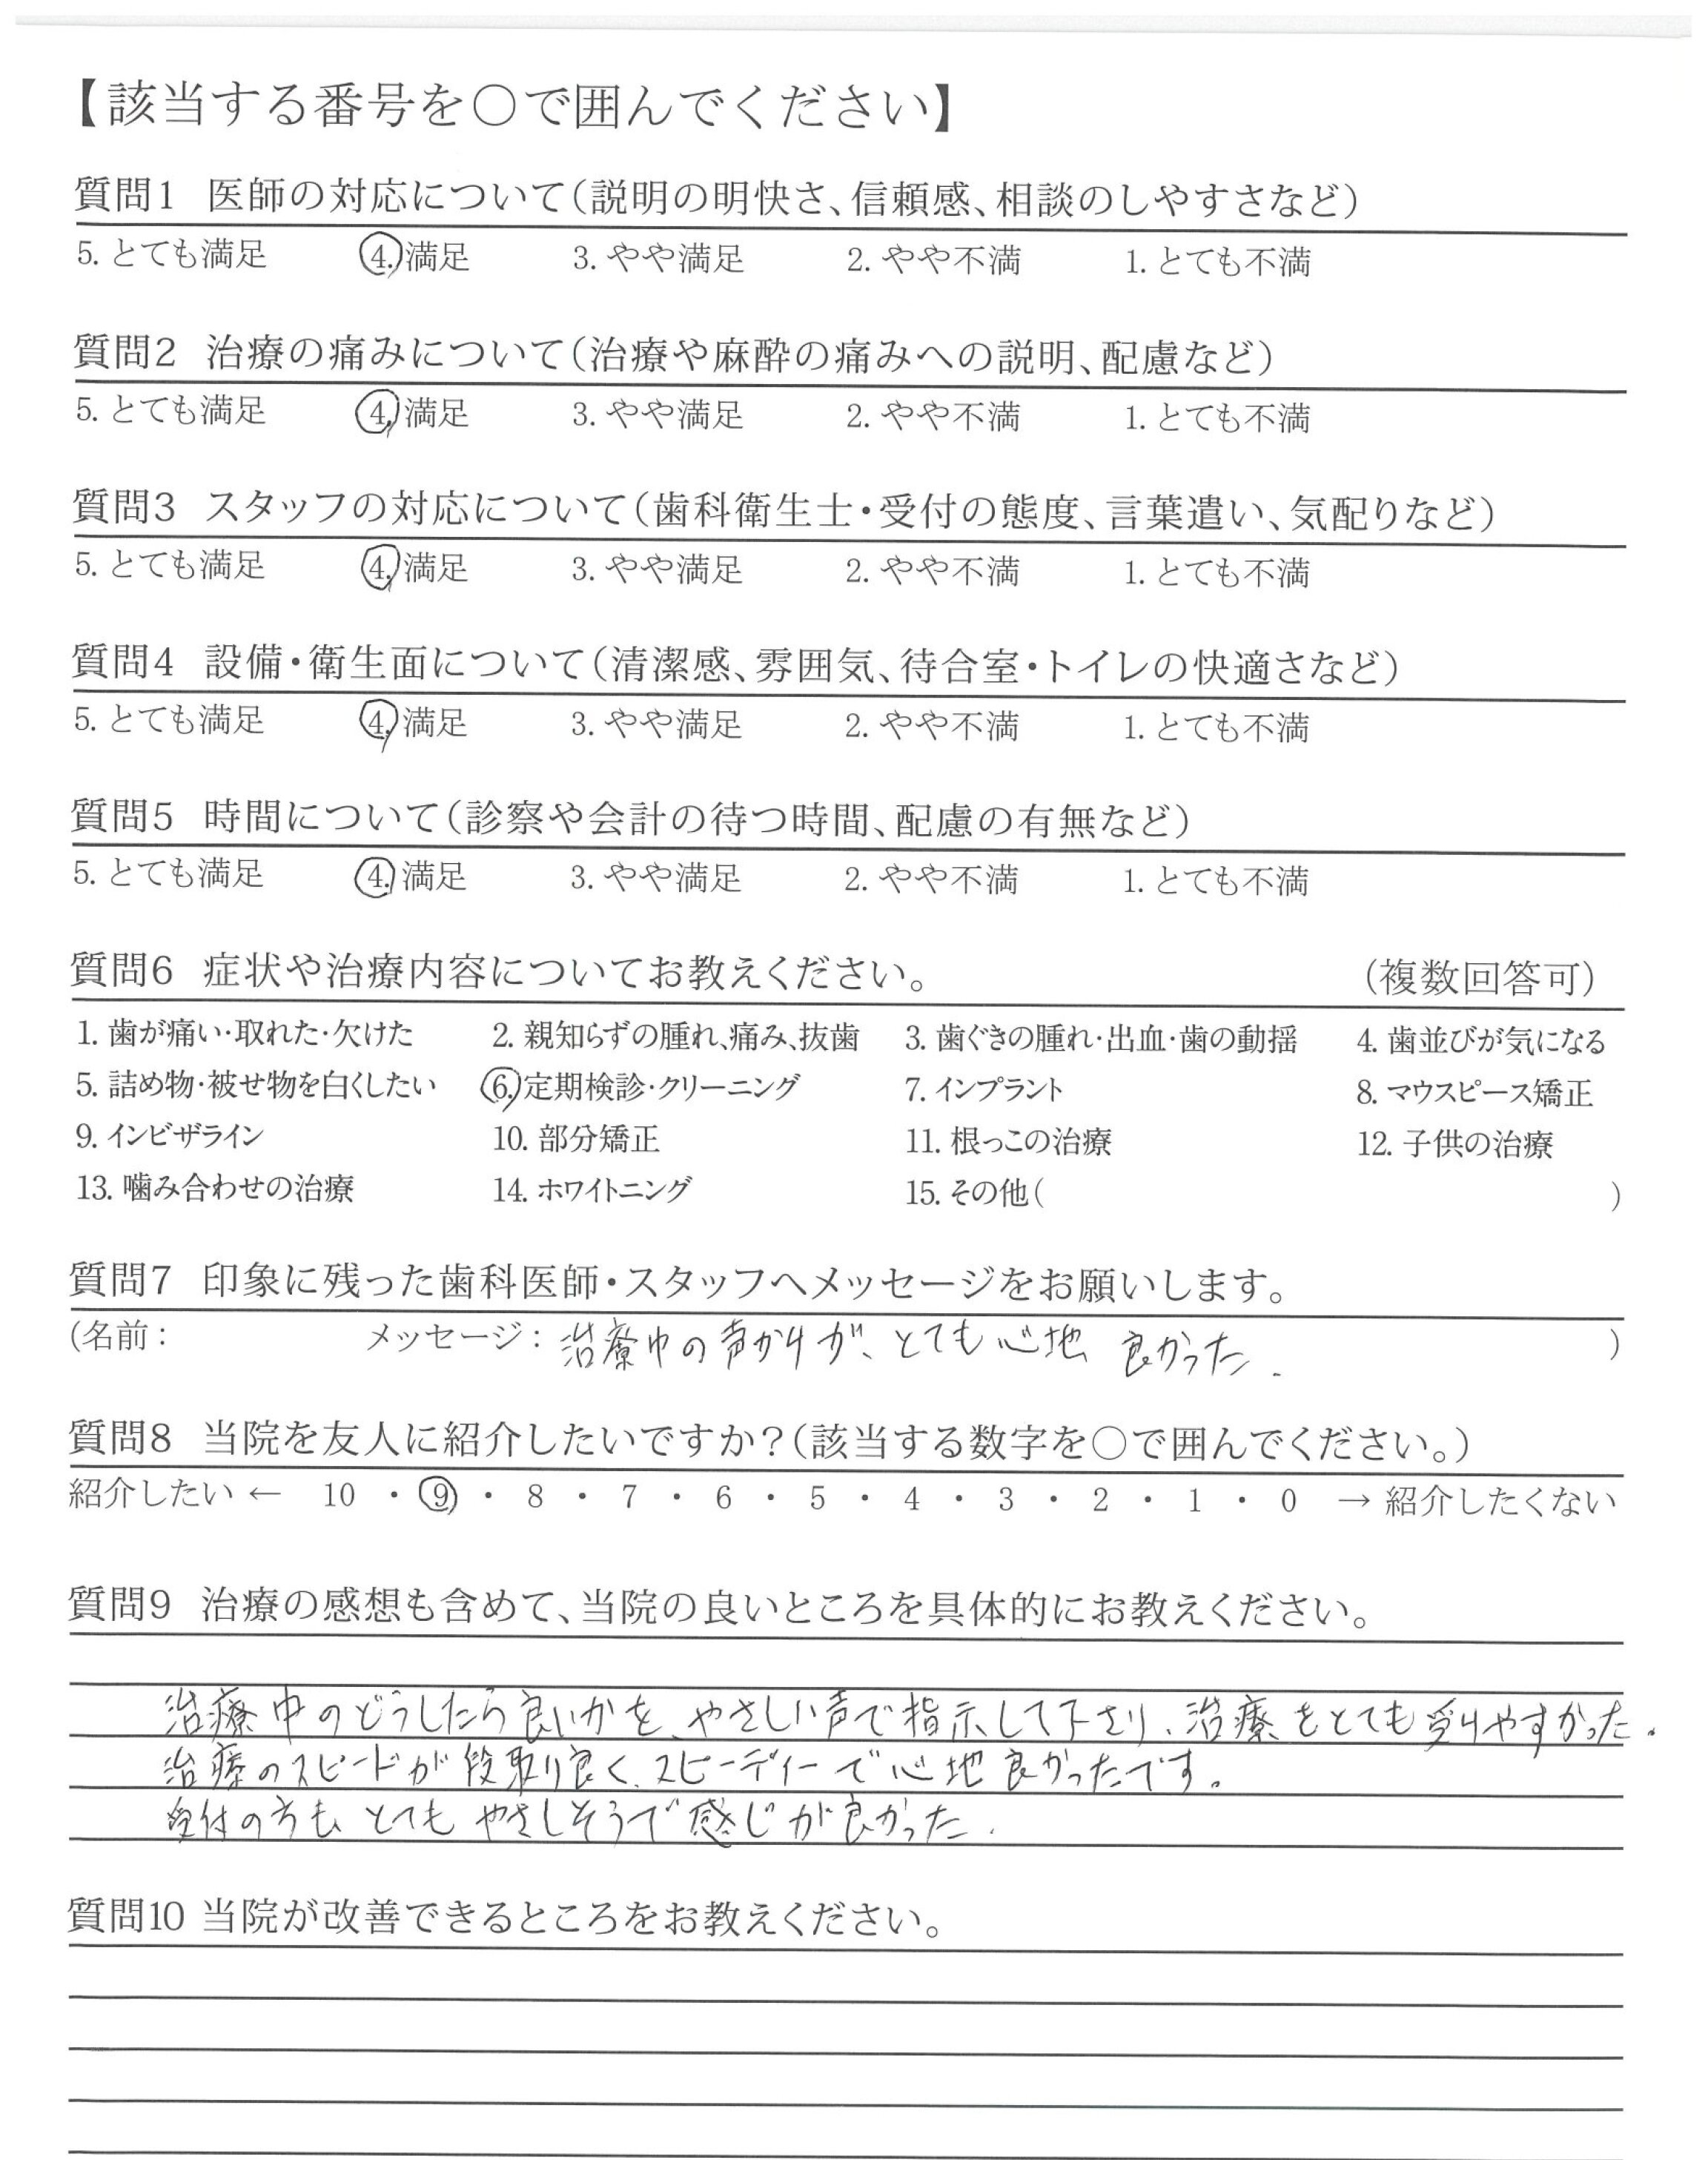 【該当する番号を○で囲んでください】
質問1 医師の対応について(説明の明快さ、信頼感、相談のしやすさなど)
5. とても満足 4. 満足 3. やや満足 2. やや不満 1. とても不満
質問2 治療の痛みについて(治療や麻酔の痛みへの説明、配慮など)
5. とても満足 4. 満足 3. やや満足 2. やや不満 1. とても不満
質問3 スタッフの対応について(歯科衛生士・受付の態度、言葉遣い、気配りなど)
5. とても満足 4. 満足 3. やや満足 2. やや不満 1. とても不満
質問4 設備・衛生面について(清潔感、雰囲気、待合室・トイレの快適さなど)
5. とても満足 4. 満足 3. やや満足 2. やや不満 1. とても不満
質問5 時間について(診察や会計の待つ時間、配慮の有無など)
5. とても満足 4. 満足 3. やや満足 2. やや不満 1. とても不満
質問6 症状や治療内容についてお教えください。 (複数回答可)
1. 歯が痛い・取れた・欠けた 2. 親知らずの腫れ、痛み、抜歯 3. 歯ぐきの腫れ・出血・歯の動揺 4. 歯並びが気になる
5. 詰め物・被せ物を白くしたい 6. 定期検診・クリーニング 7. インプラント 8. マウスピース矯正
9. インビザライン 10. 部分矯正 11. 根っこの治療 12. 子供の治療
13. 噛み合わせの治療 14. ホワイトニング 15. その他( )
質問7 印象に残った歯科医師・スタッフへメッセージをお願いします。
(名前: メッセージ: 治療中の声かけが、とても心地良かった. )
質問8 当院を友人に紹介したいですか?(該当する数字を○で囲んでください。)
紹介したい ← 10 ・ 9 ・ 8 ・ 7 ・ 6 ・ 5 ・ 4 ・ 3 ・ 2 ・ 1 ・ 0 → 紹介したくない
質問9 治療の感想も含めて、当院の良いところを具体的にお教えください。
治療中のどうしたら良いかを、やさしい声で指示して下さり、治療をとても受けやすかった.
治療のスピードが段取り良く、スピーディーで心地良かったです。
受付の方も、とてもやさしそうで感じが良かった.
質問10 当院が改善できるところをお教えください。